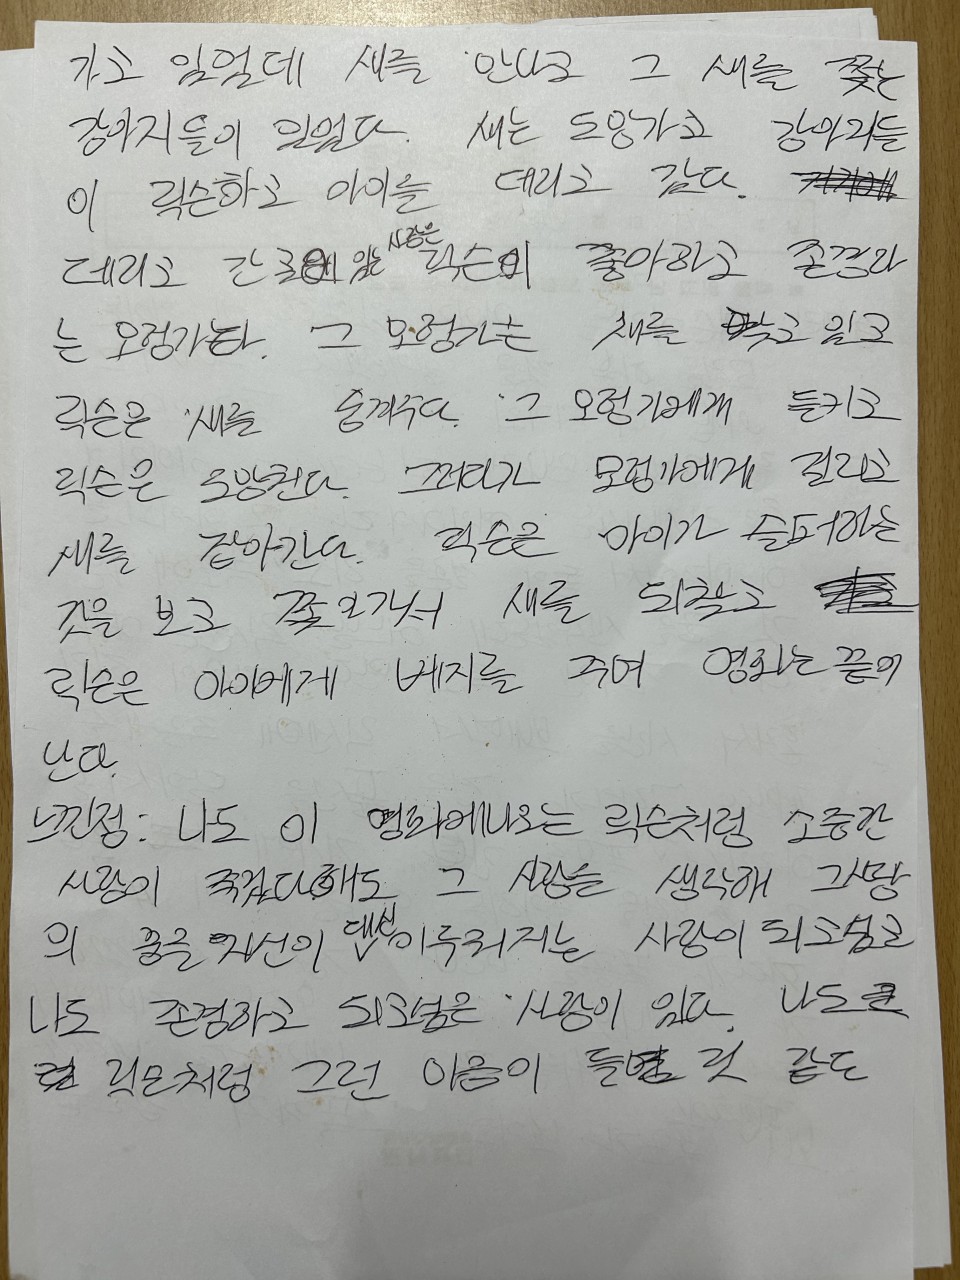 가고 있엏데 새를 만나고 그 새를 쫓는
강아지들이 있었다. 새는 도망가고 강아지들
이 릭슨하고 아이를 데리고 갔다.
데리고 간 곳에 있는 사람은 릭슨이 좋아하고 존경하
는 모험가다. 그 모험가는 새를 쫓고 있고
릭슨은 새를 숨겨주다. 그 모험가에게 들키고
릭슨은 도망친다. 그러다가 모험가에게 걸리고
새를 잡아간다. 릭슨은 아이가 슬퍼하는
것을 보고 쫓아가서 새를 되찾고
릭슨은 아이에게 베지를 주며 영화는 끝이
난다.
느낀점: 나도 이 영화에나오는 릭슨처럼 소중한
사람이 죽었다해도 그 사람을 생각해 그사람
의 꿈을 자신이 대신 이루러지는 사람이 되고싶고
나도 존경하고 되고싶은 사람이 있다. 나도
릭슨처럼 그런 마음이 들 것 같다